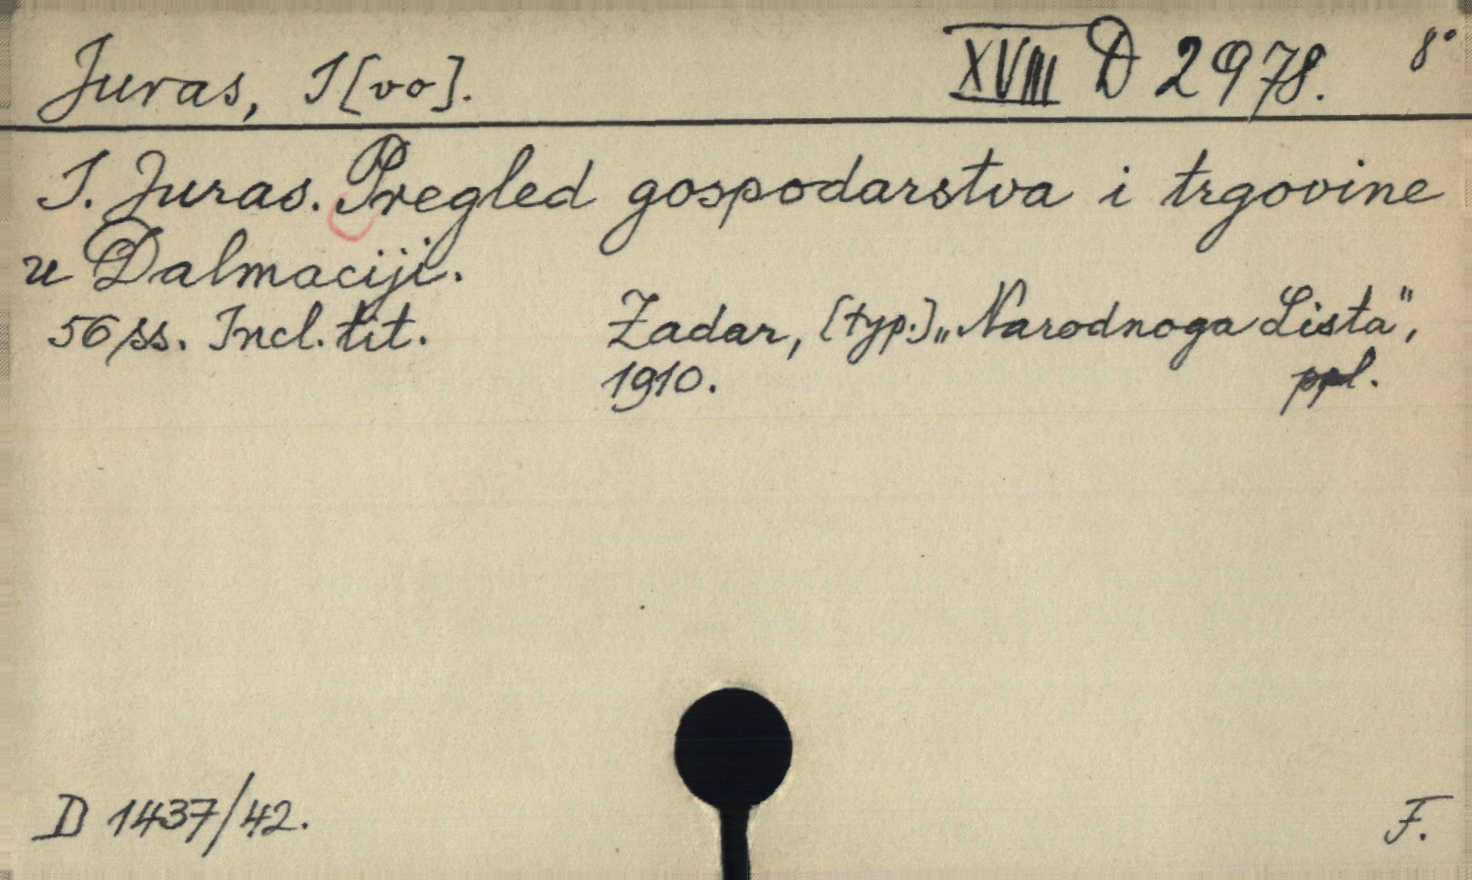 Juras, I[vo]. XVIII D 2978. 8°
I. Juras. Pregled gospodarstva i trgovine
u Dalmaciji.
56 ss. Incl. tit. Zadar, [typ.] „Narodnoga Lista",
1910. ppl.
D 1437/42. F.